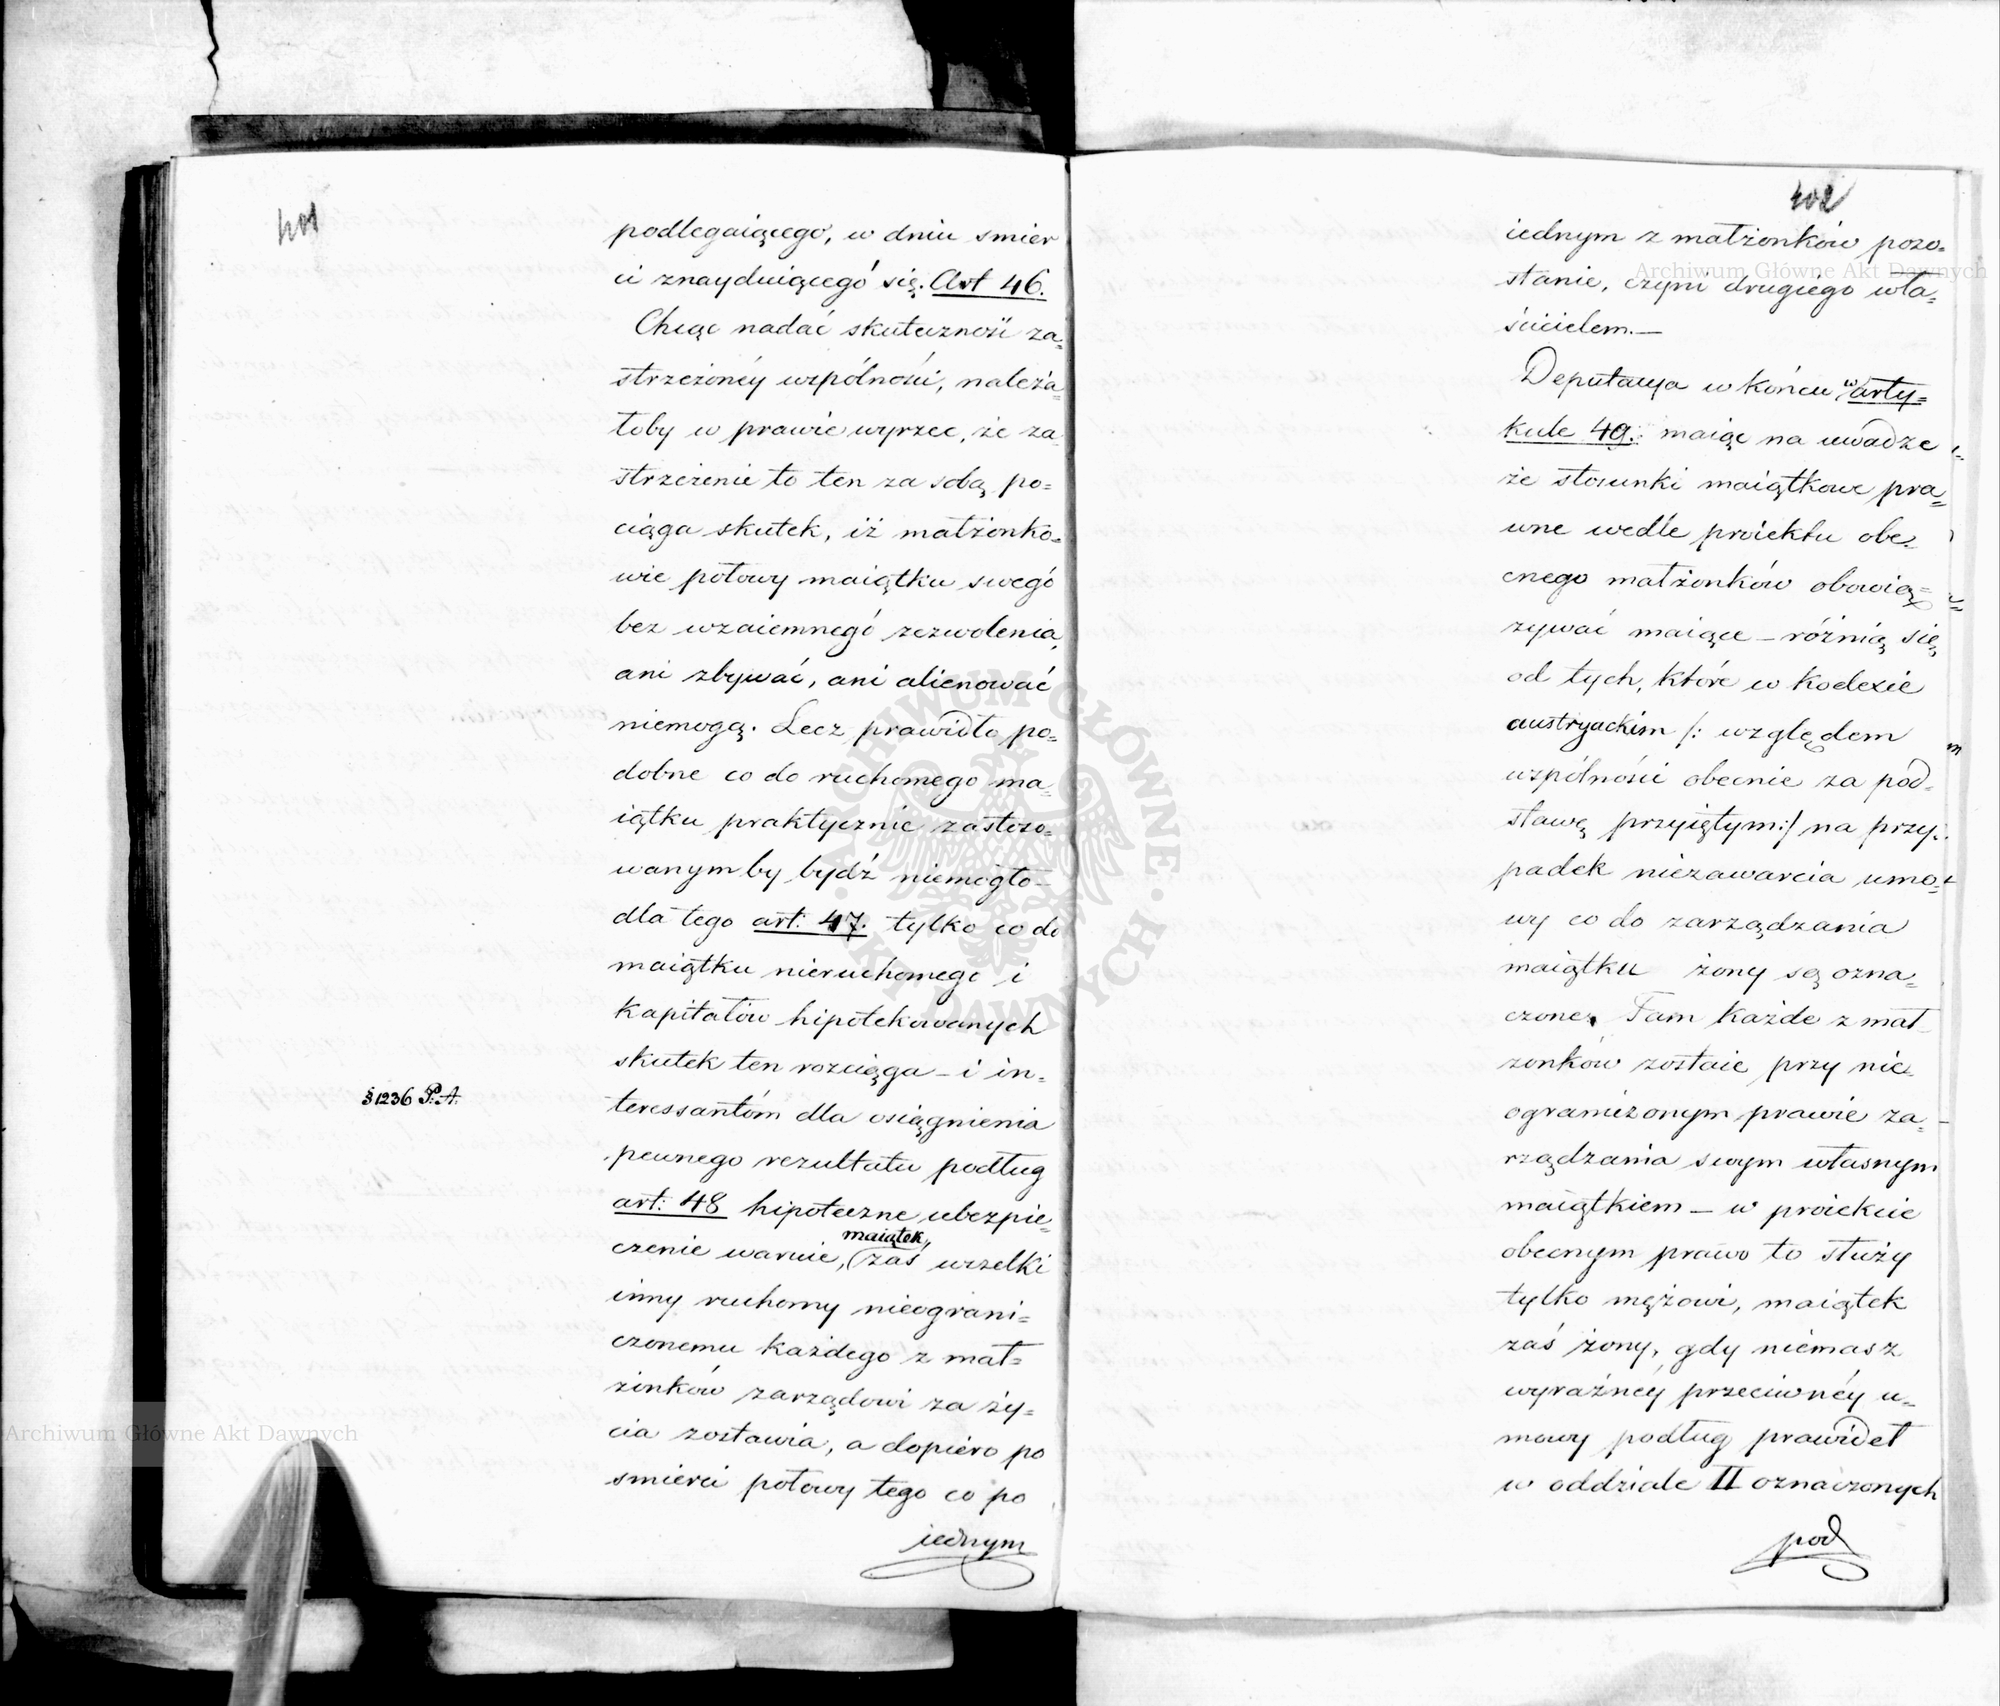 401
podlegaiącego, w dniu smier
ci znayduiącego się. Art 46.
Chcąc nadać skuteczność za=
strzeżonéy wspólności, należa=
łoby w prawie wyrzec, że za
strzeżenie to ten za sobą po=
ciąga skutek, iż małżonko=
wie połowy maiątku swego
bez wzaiemnego zezwolenia,
ani zbywać, ani alienować
niemogą. Lecz prawidło po=
dobne co do ruchomego ma=
iątku praktycznie zastoso=
wanym by bydź niemogło –
dla tego art: 47. tylko co do
maiątku nieruchomego i
kapitałów hipotekowanych
skutek ten rozciąga – i in=
§ 1236 P. A.
teressantóm dla osiągnienia
pewnego rezultatu podług
art: 48 hipoteczne ubezpie=
maiątek,
czenie waruie, (zaś wszelki
inny ruchomy nieograni=
czonemu każdego z mał=
żonków zarządowi za ży=
cia zostawia, a dopiero po
smierci połowy tego co po
iednym
402
iednym z małżonków pozo=
stanie, czyni drugiego wła=
ścicielem. —
Deputacya w końcu w arty=
kule 49. maiąc na uwadze
że stosunki maiątkowe pra=
wne wedle proiektu obe=
cnego małżonków obowią=
zywać maiące – różnią się
od tych, które w kodexie
austryackim /: względem
wspólności obecnie za pod=
stawę przyiętym :/ na przy=
padek niezawarcia umo=
wy co do zarządzania
maiątku żony są ozna=
czone. Tam każde z mał
żonków zostaie przy nie=
ograniczonym prawie za=
rządzania swym własnym
maiątkiem – w proiekcie
obecnym prawo to służy
tylko mężowi, maiątek
zaś żony, gdy niemasz
wyraźnéy przeciwnéy u=
mowy podług prawideł
w oddziale II oznaczonych
pod
Archiwum Główne Akt Dawnych
Archiwum Główne Akt Dawnych
ARCHIWUM GŁÓWNE AKT DAWNYCH